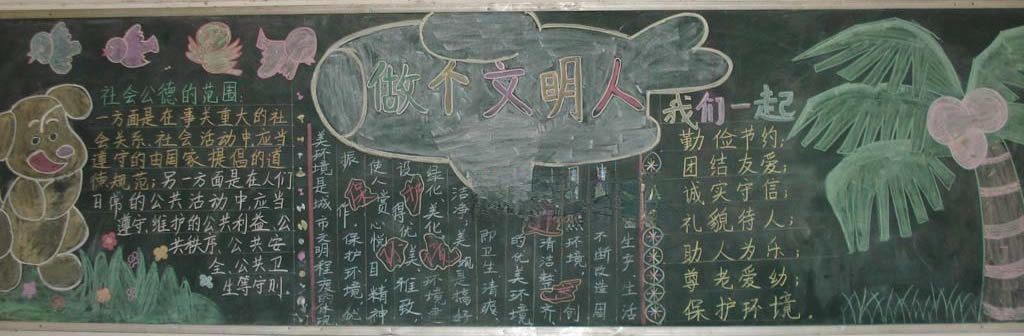 做个文明人
社会公德的范围:
一方面是在事关重大的社
会关系、社会活动中应当
遵守的由国家提倡的道
德规范;另一方面是在人们
日常的公共活动中应当
遵守、维护的公共利益、公
共秩序、公共安
全、公共卫
生等守则
我们一起
勤俭节约;
团结友爱;
诚实守信;
礼貌待人;
助人为乐;
尊老爱幼;
保护环境.
生乎生活
不断改造周
环境,创
清洁整齐
的优美环境
即卫生清爽
洁净、美观是搞好
绿化美化环境
设得优美、雅致
使人赏心悦目精神
振作,保护环境优
美环境是城市文明程度的